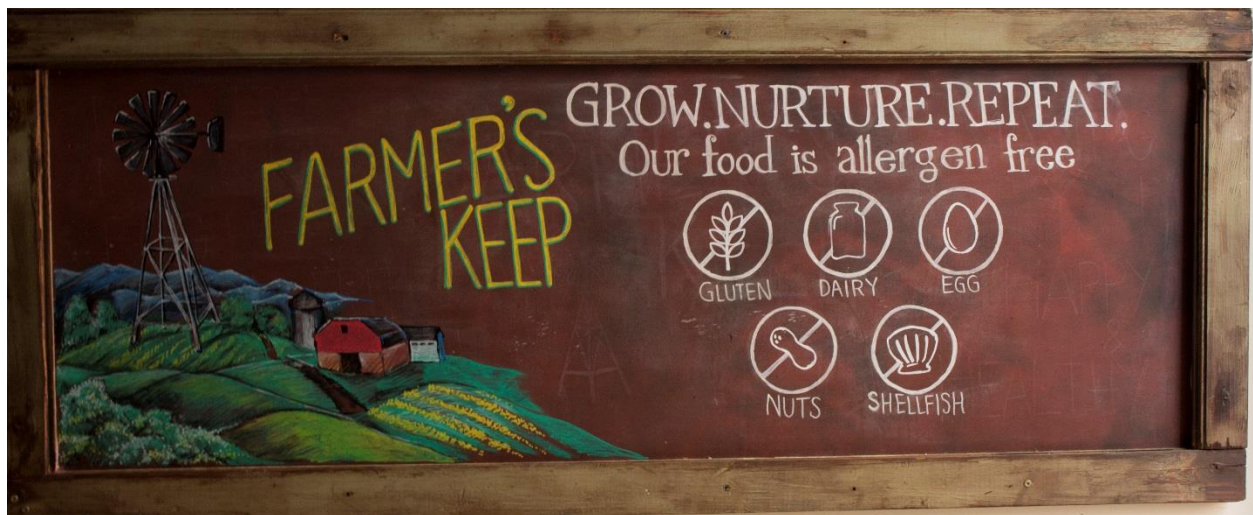 FARMER'S
KEEP
GROW.NURTURE.REPEAT.
Our food is allergen free
GLUTEN DAIRY EGG
NUTS SHELLFISH